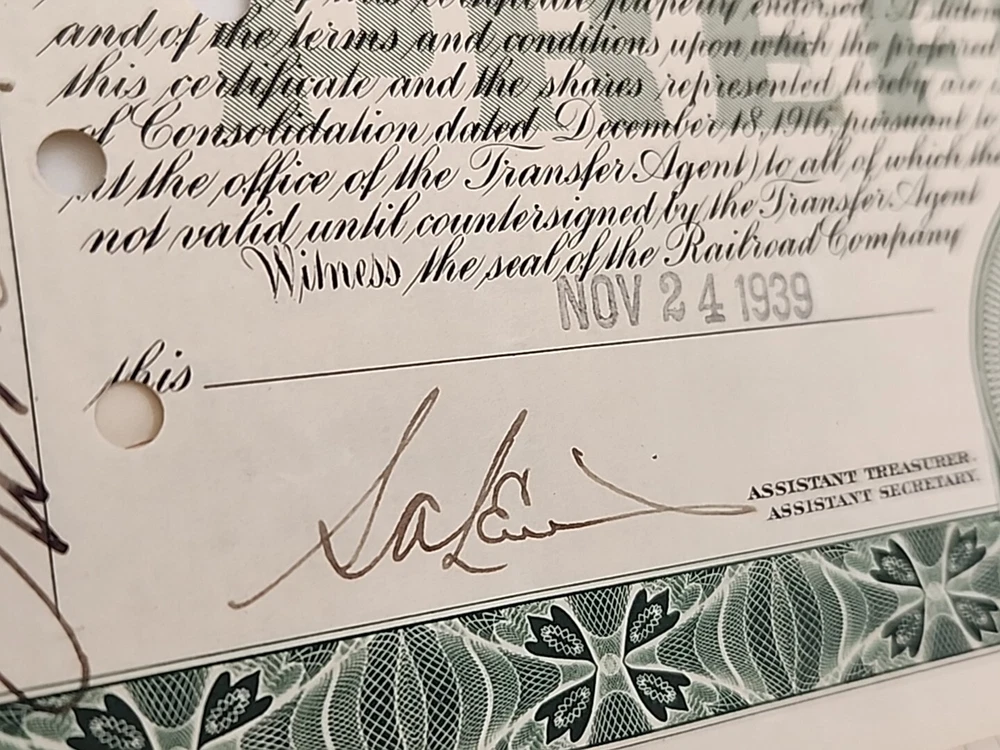 certificate properly endorsed. A
and of the terms and conditions upon which the preferred
this certificate and the shares represented hereby are
of Consolidation, dated December 18, 1916, pursuant to
at the office of the Transfer Agent) to all of which the
not valid until countersigned by the Transfer Agent
Witness the seal of the Railroad Company
NOV 24 1939
this
ASSISTANT TREASURER.
ASSISTANT SECRETARY.